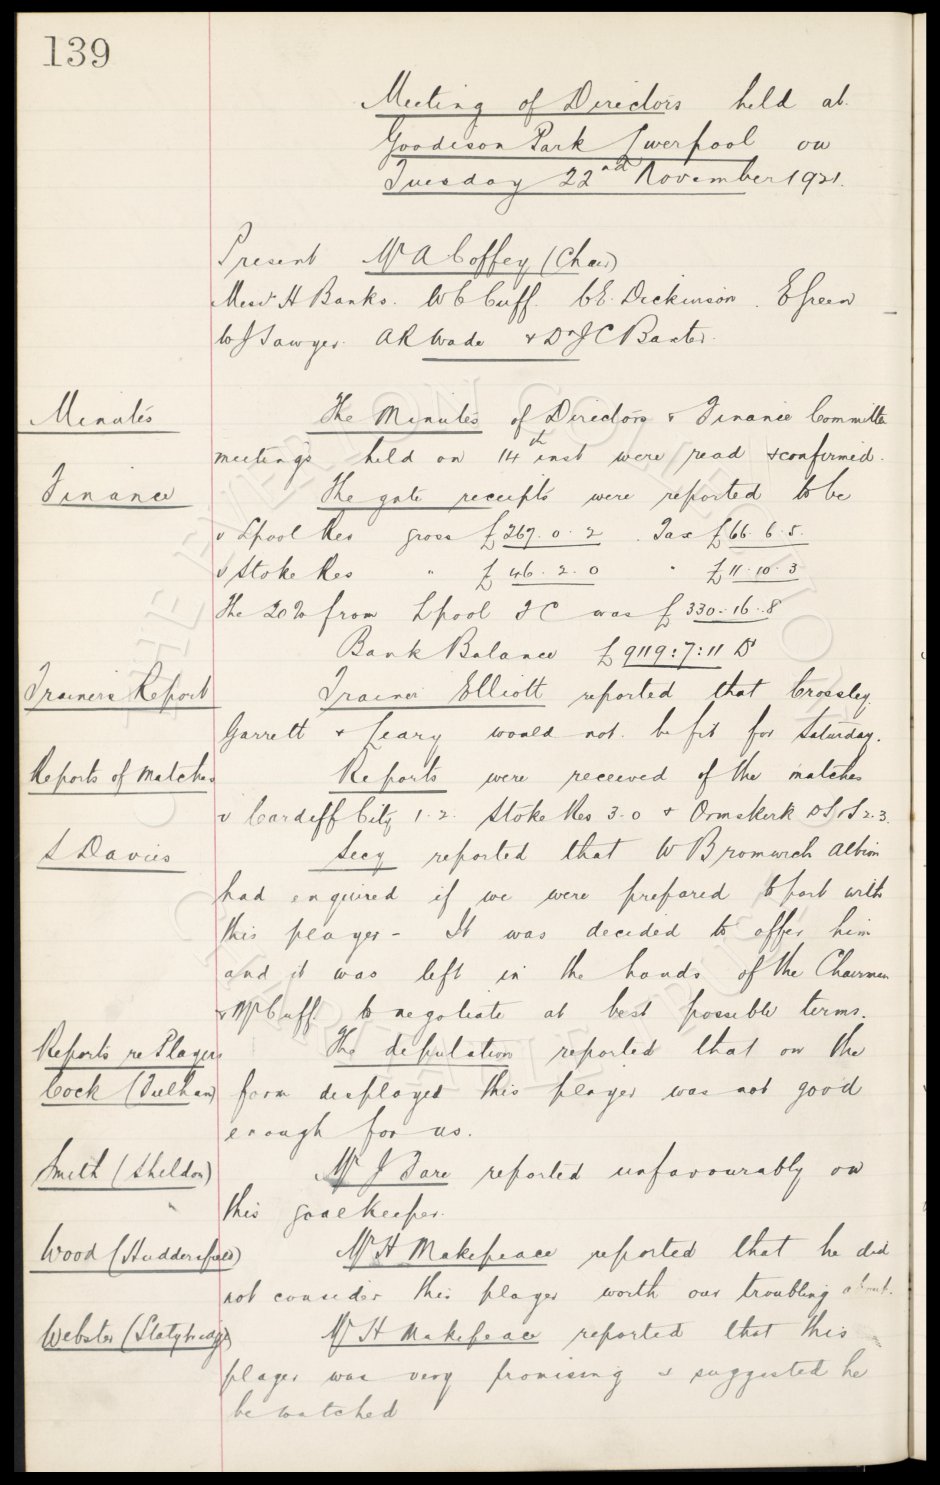 139
Meeting of Directors held at
Goodison Park Liverpool on
Tuesday 22nd November 1921.
Present Mr A Coffey (Chair)
Messrs H Banks. W C Cuff. C E. Dickinson. E Green
W J Sawyer. A R Wade & Dr J C Baxter.
Minutes The Minutes of Directors & Finance Committee
meetings held on 14th inst were read & confirmed.
Finance The gate receipts were reported to be
v Lpool Res gross £267. 0. 2. Tax £66. 6. 5.
v Stoke Res " £46. 2. 0 " £11. 10. 3
The 20% from Lpool F C was £330. 16. 8
Bank Balance £9119:7:11 Dr
Trainers Report Trainer Elliott reported that Crossley,
Garrett & Leary would not be fit for Saturday.
Reports of Matches Reports were received of the matches
v Cardiff City 1. 2. Stoke Res 3-0 & Ormskirk DS &S 2. 3.
S Davies Secy reported that W Bromwich Albion
had enquired if we were prepared to part with
this player - It was decided to offer him
and it was left in the hands of the Chairman
& Mr Cuff to negotiate at best possible terms.
Reports re Players The deputation reported that on the
Cock (Fulham) form displayed this player was not good
enough for us.
Smith (Sheldon) Mr J Tare reported unfavourably on
this goalkeeper.
Wood (Huddersfield) Mr H Makepeace reported that he did
not consider this player worth our troubling about.
Webster (Stalybridge) Mr H Makepeace reported that this
player was very promising & suggested he
be watched
THE EVERTON COLLECTION
CHARITABLE TRUST